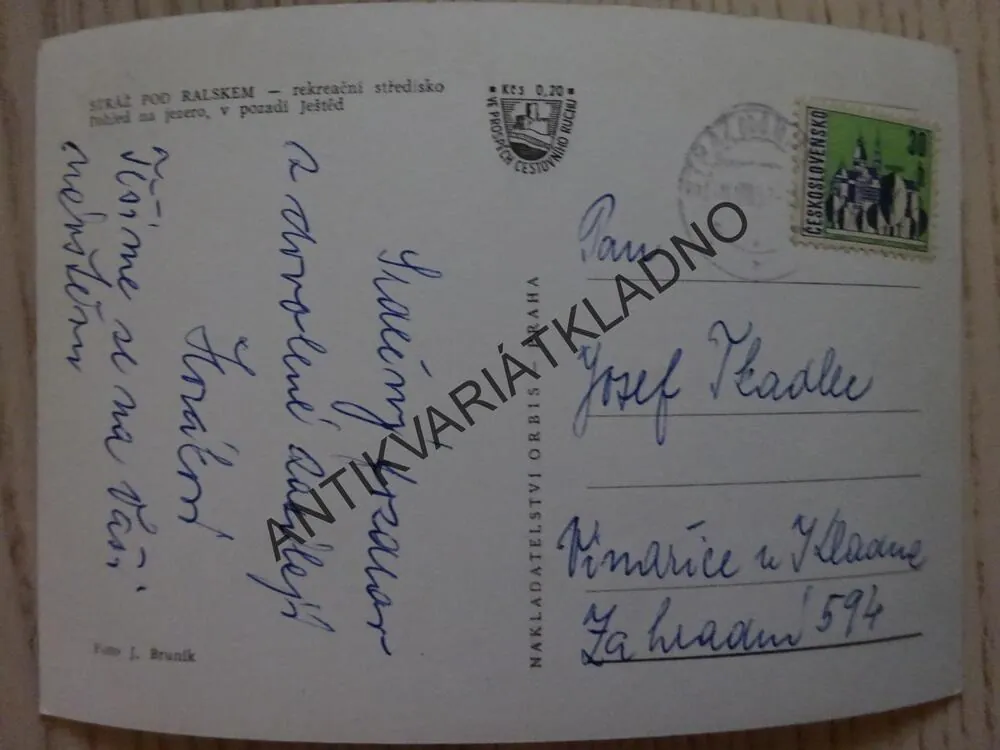 STRÁŽ POD RALSKEM — rekreační středisko
Pohled na jezero, v pozadí Ještěd
Kčs 0,20
VE PROSPĚCH CESTOVNÍHO RUCHU
ČESKOSLOVENSKO
30
Srdečný pozdrav
z dovolené zasílají
Horáčkovi
Těšíme se na Vaši
návštěvu
Foto J. Bruník
NAKLADATELSTVÍ ORBIS — PRAHA
Pan
Josef Tkadlec
Vinařice u Kladna
Zahradní 594
ANTIKVARIÁTKLADNO